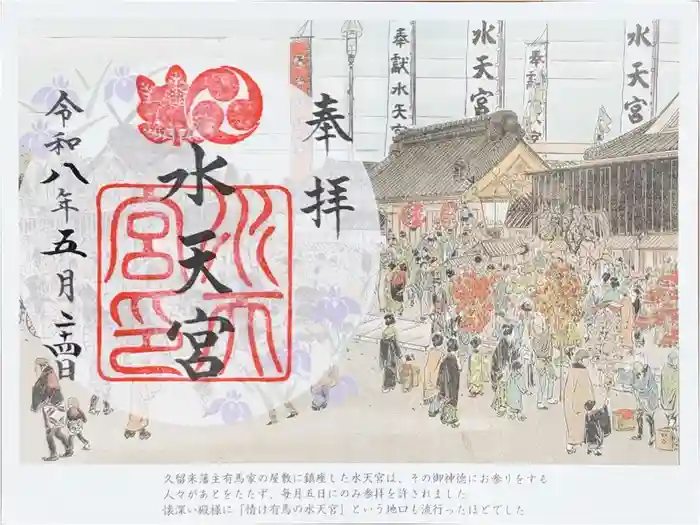 奉拝
水天宮
水天宮印
令和八年五月二十四日
奉献水天宮
水天宮
水天宮
久留米藩主有馬家の屋敷に鎮座した水天宮は、その御神徳にお参りをする
人々があとをたたず、毎月五日にのみ参拝を許されました
懐深い殿様に「情け有馬の水天宮」という地口も流行ったほどでした